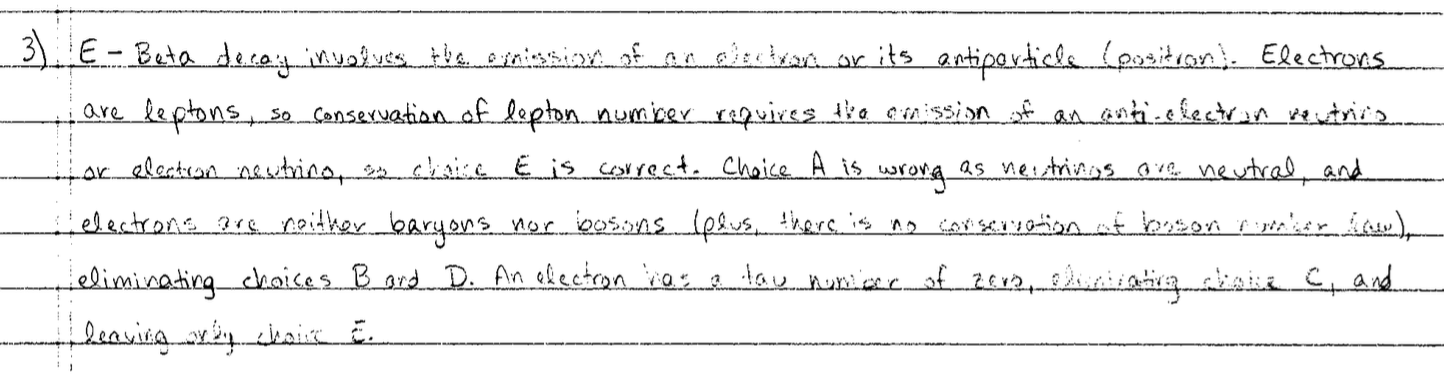 3) E - Beta decay involves the emission of an electron or its antiparticle (positron). Electrons
are leptons, so conservation of lepton number requires the emission of an anti-electron neutrino
or electron neutrino, so choice E is correct. Choice A is wrong as neutrinos are neutral, and
electrons are neither baryons nor bosons (plus, there is no conservation of boson number law),
eliminating choices B and D. An electron has a tau number of zero, eliminating choice C, and
leaving only choice E.